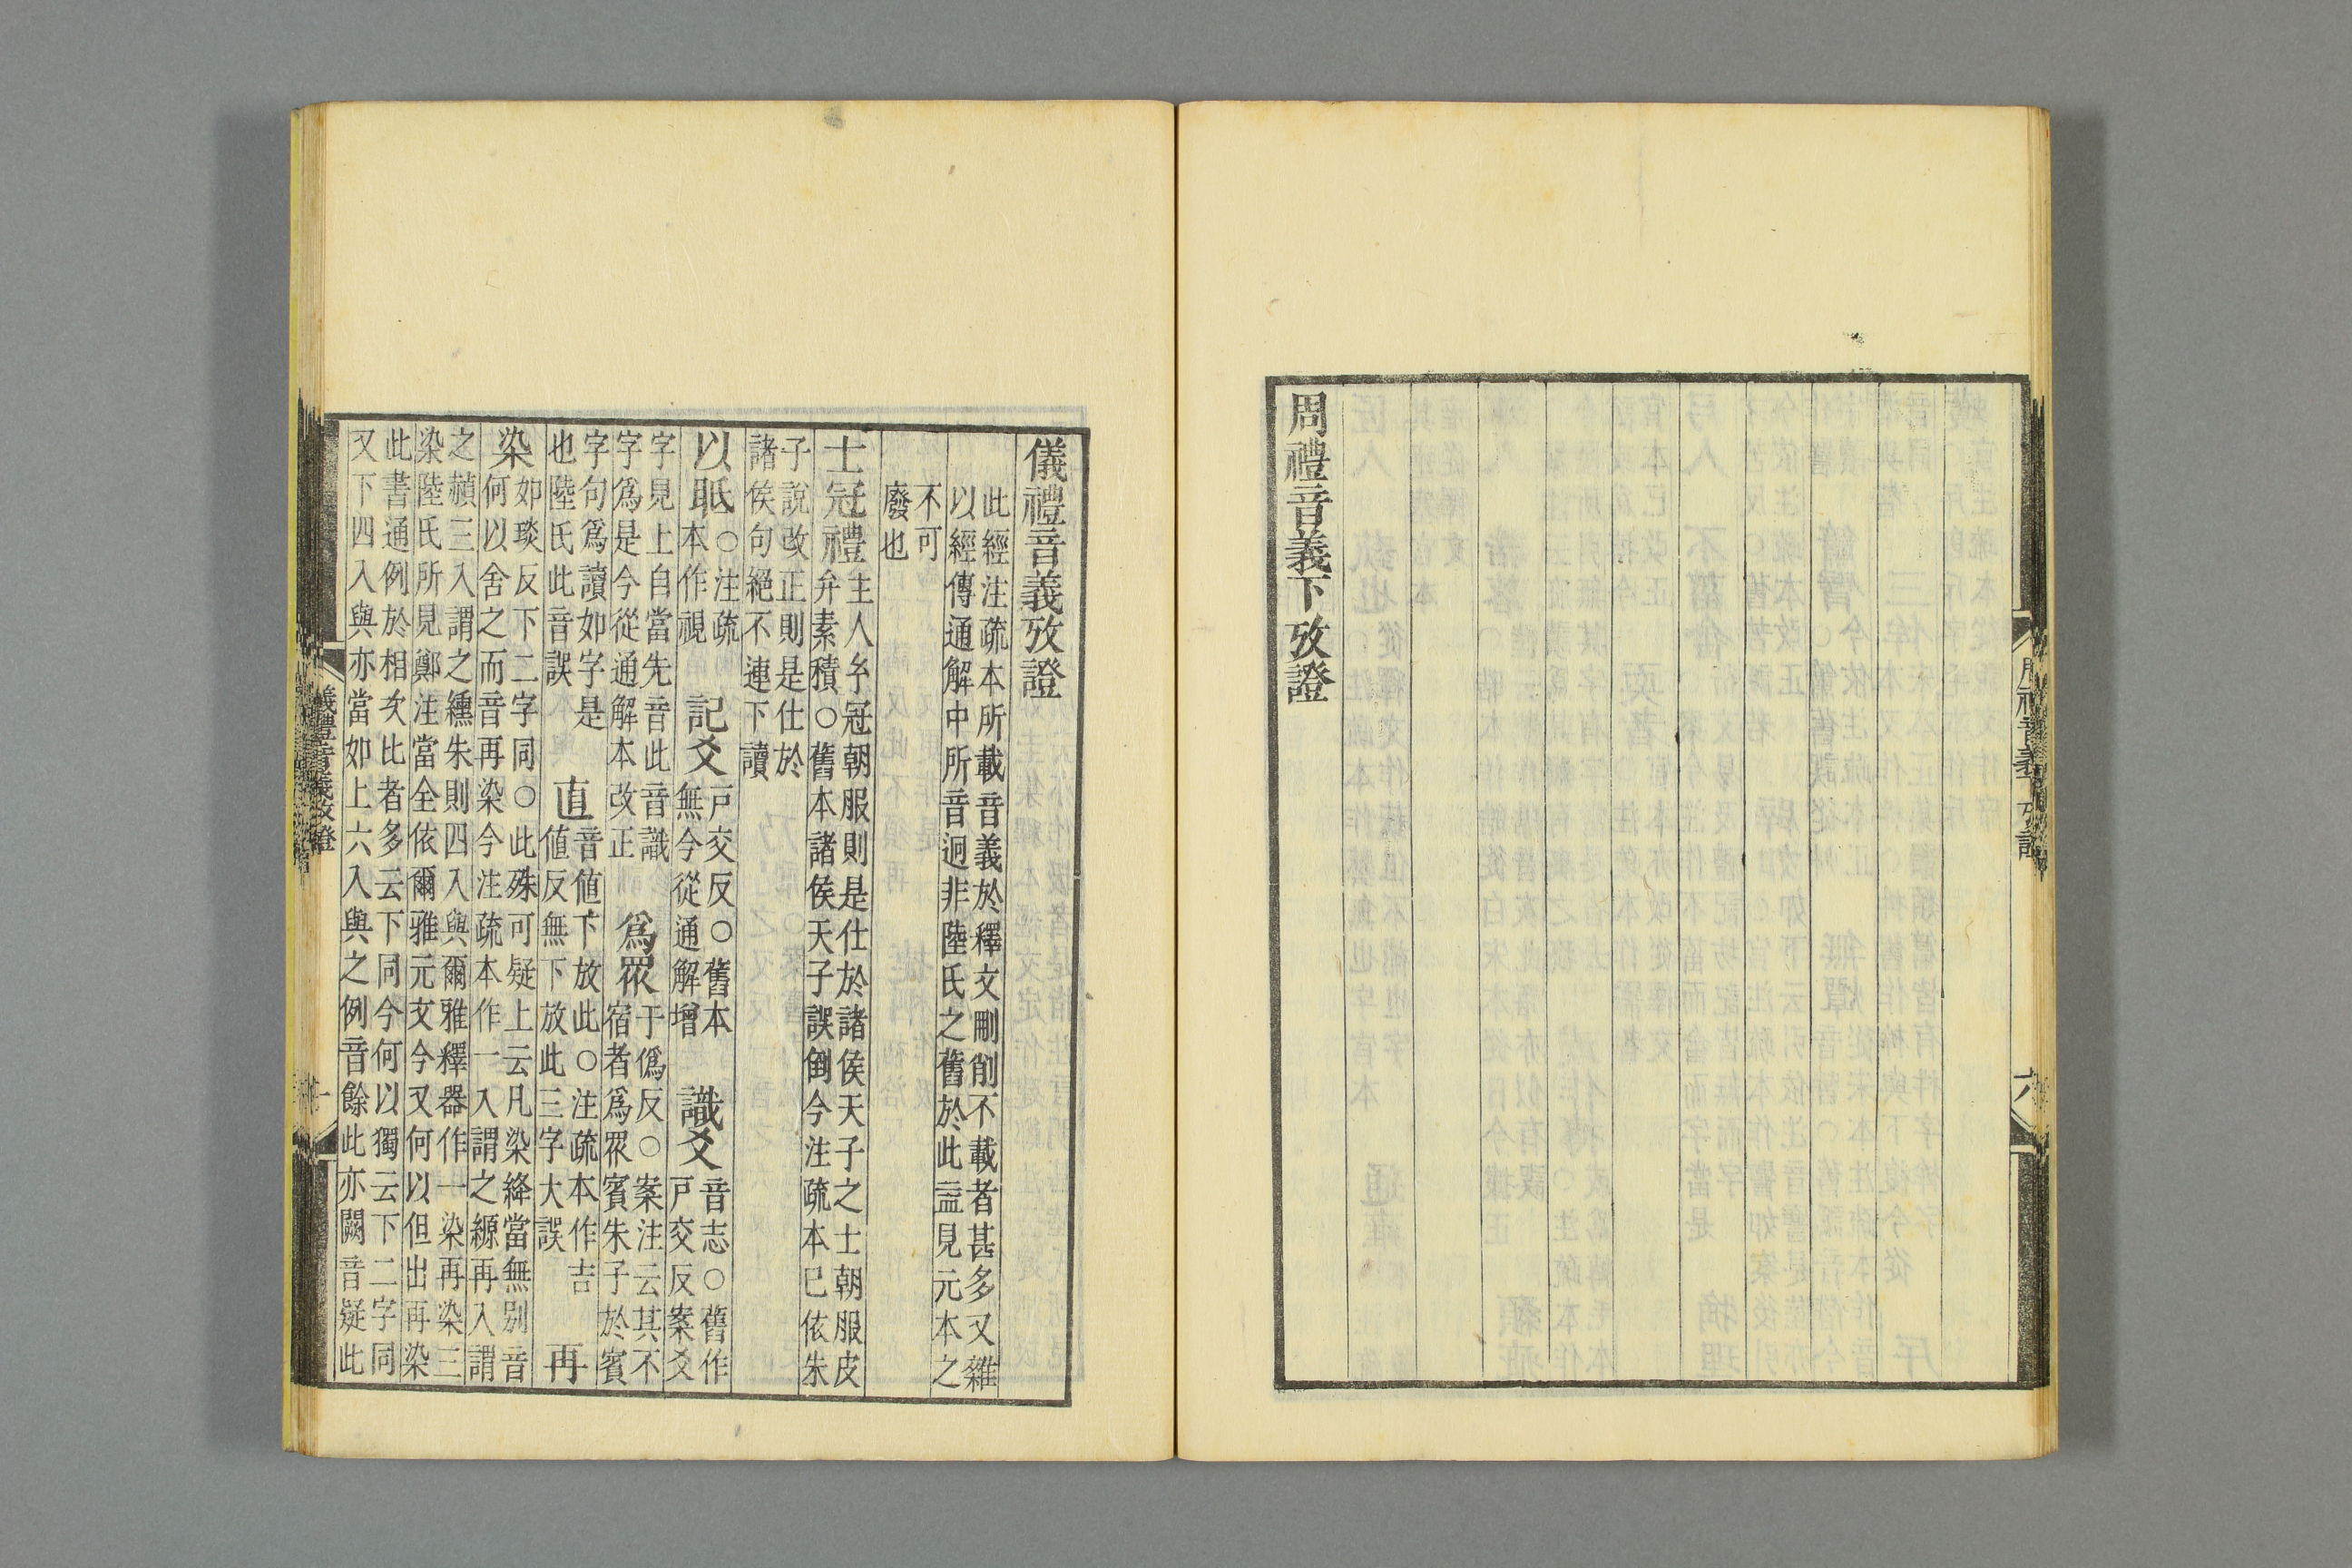 周禮音義下攷證
儀禮音義攷證
此經注疏本所載音義於釋文刪削不載者甚多又雜
以經傳通解中所音迥非陸氏之舊於此盖見元本之
不可
廢也
士冠禮
主人𤣥冠朝服則是仕於諸侯天子之士朝服皮
弁素積○舊本諸侯天子誤倒今注疏本已依朱
子說改正則是仕於
諸侯句絕不連下讀
以眡
○注疏
本作視
記爻
戸交反○舊本
無今從通解增
識爻
音志○舊作
戸交反案爻
字見上自當先音此音識
字爲是今從通解本改正
爲眾
于僞反○案注云其不
宿者爲眾賓朱子於賓
字句爲讀如字是
也陸氏此音誤
直
音值下放此○注疏本作吉
值反無下放此三字大誤
再
染
如琰反下二字同○此殊可疑上云凡染絳當無别音
何以舍之而音再染今注疏本作一入謂之縓再入謂
之赬三入謂之纁朱則四入與爾雅釋器作一染再染三
染陸氏所見鄭注當全依爾雅元文今又何以但出再染
此書通例於相次比者多云下同今何以獨云下二字同
又下四入與亦當如上六入與之例音餘此亦闕音疑此